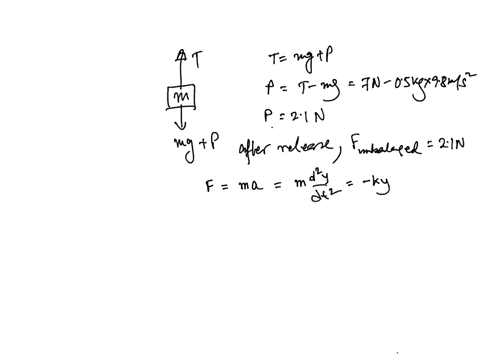 T
T = mg + P
m
P = T - mg = 7N - 0.5kg x 9.8 m/s²
P = 2.1 N
mg + P
after release, F unbalaged = 2.1N
F = ma = m d²y/dt² = -ky